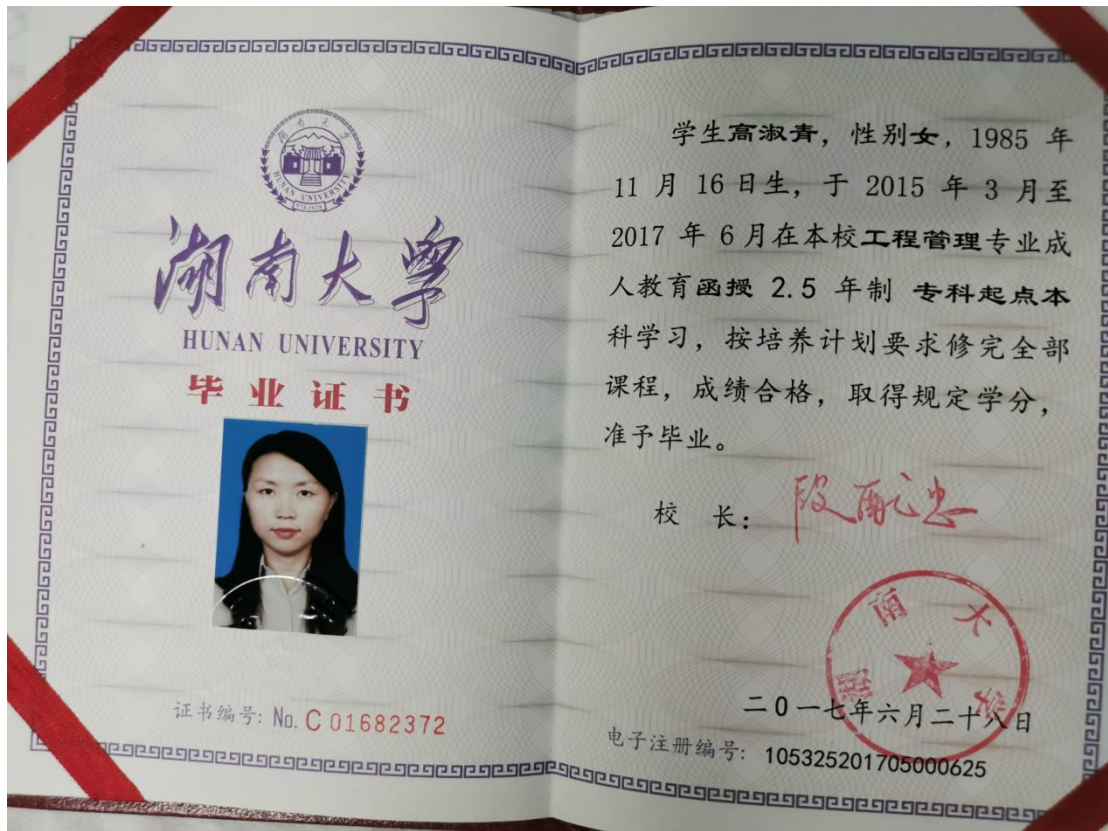 湖南大学
HUNAN UNIVERSITY
湖南大學
HUNAN UNIVERSITY
毕业证书
证书编号: No. C 01682372
学生高淑青，性别女，1985 年
11 月 16 日生，于 2015 年 3 月至
2017 年 6 月在本校工程管理专业成
人教育函授 2.5 年制 专科起点本
科学习，按培养计划要求修完全部
课程，成绩合格，取得规定学分，
准予毕业。
校 长:
湖南大学
二0一七年六月二十八日
电子注册编号: 105325201705000625